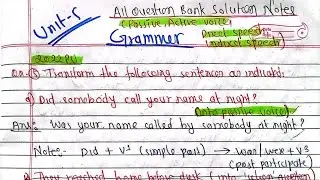 All Question Bank Solution Notes
Unit-5
(Passive, Active voice)
Grammer
Direct speech
Indirect speech
Q.n. ⑤ Transform the following sentences as indicated:
a) Did somebody call your name at night?
(into passive voice)
Ans:- Was your name called by somebody at night?
Note:- Did + V¹ (simple past) → was/were + V3
(past participate)
They reached home before dusk (into 'when' question